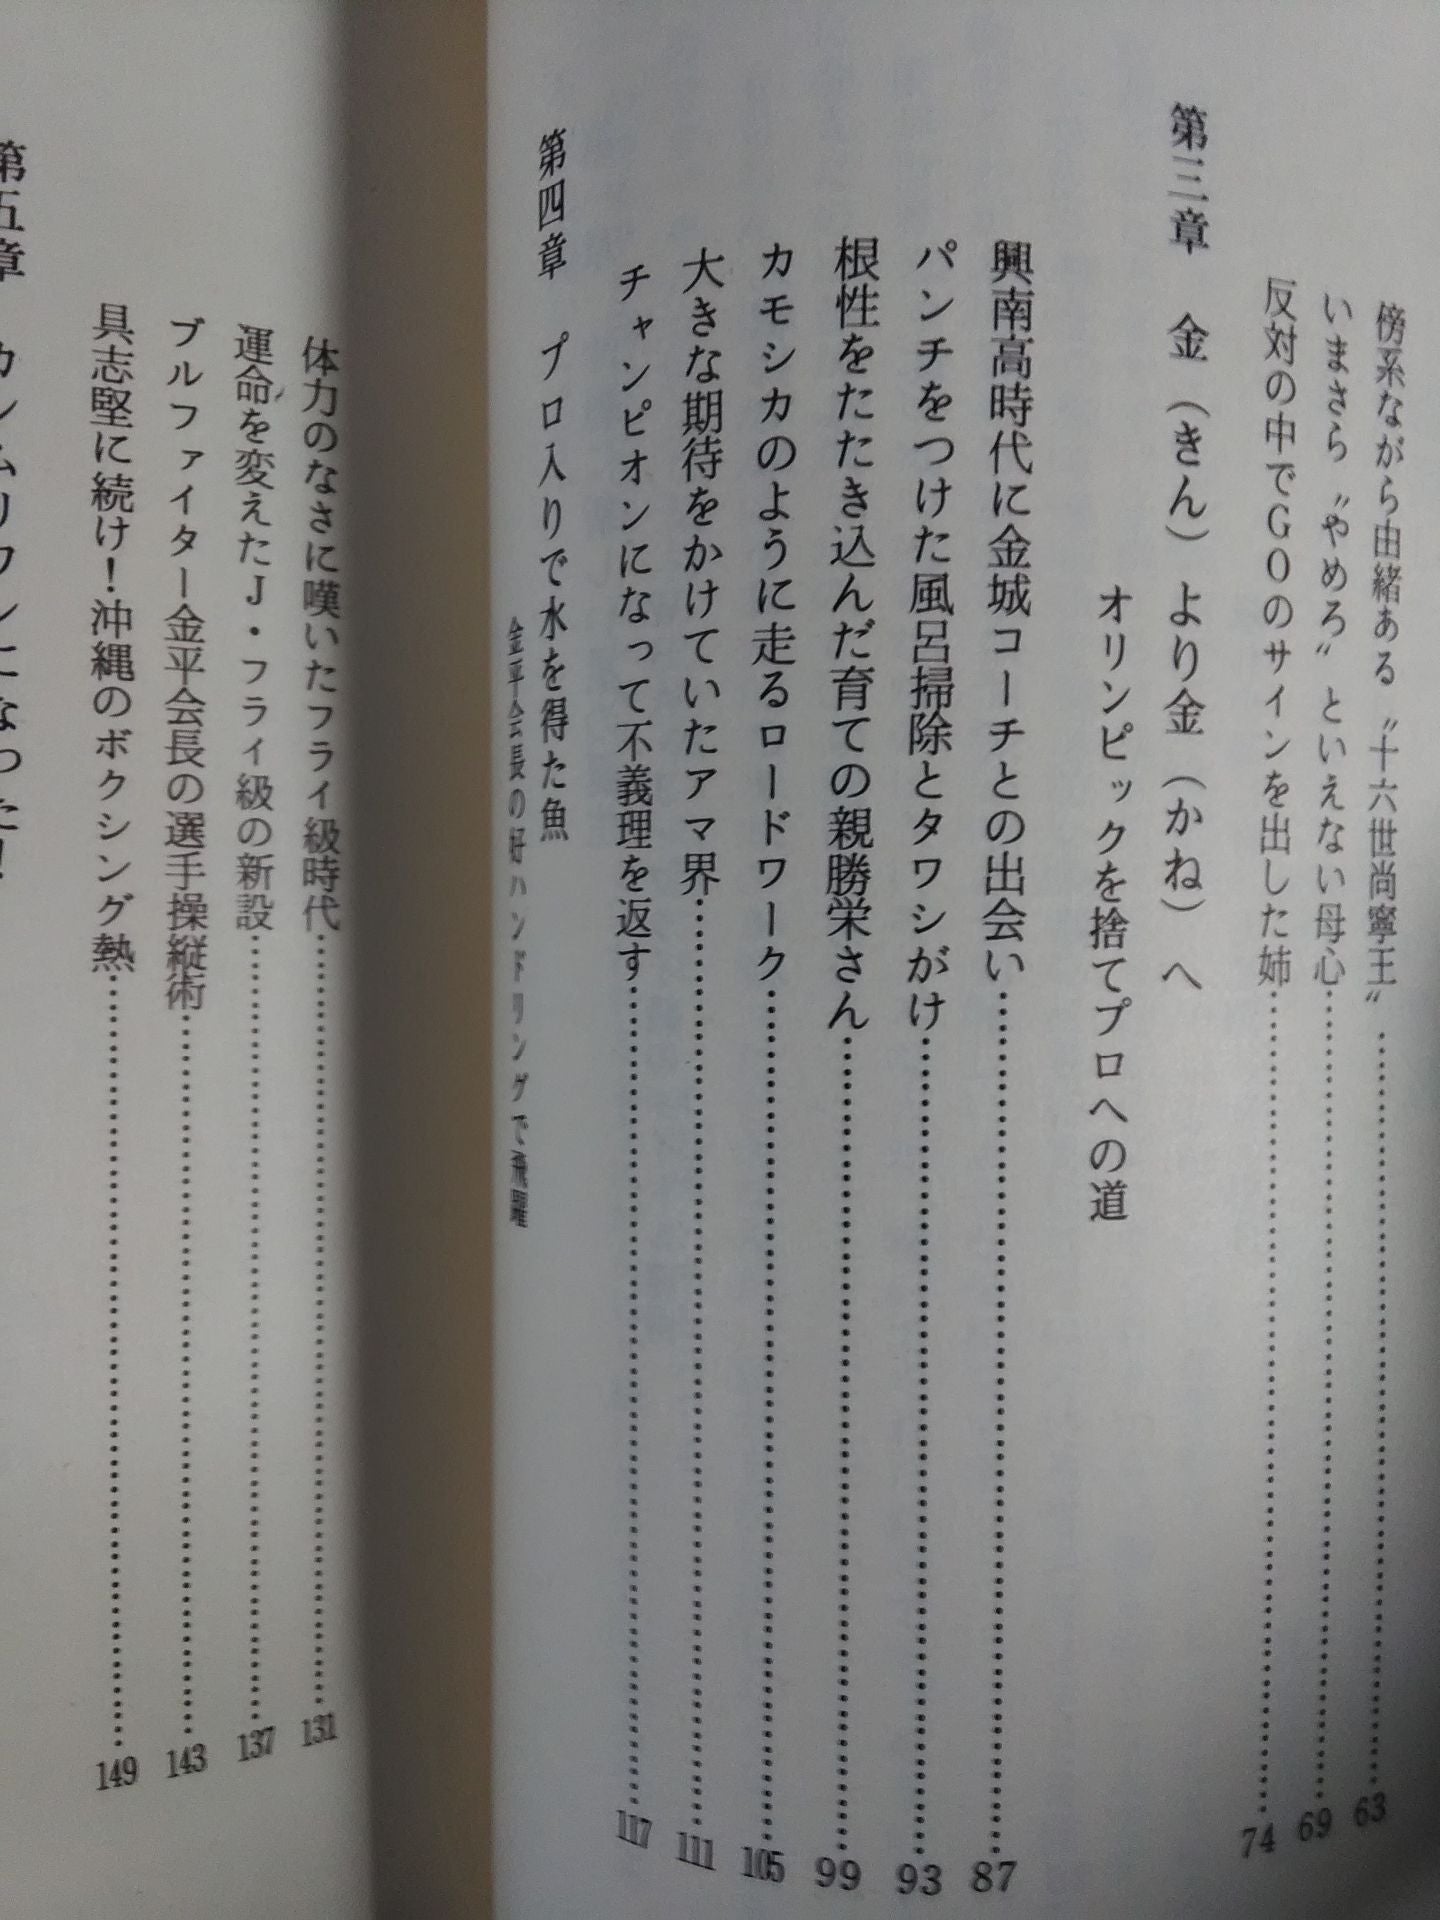 傍系ながら由緒ある〝十六世尚寧王〟……63
いまさら〝やめろ〟といえない母心……69
反対の中でGOのサインを出した姉……74
第三章　金（きん）より金（かね）へ
オリンピックを捨てプロへの道
興南高時代に金城コーチとの出会い……87
パンチをつけた風呂掃除とタワシがけ……93
根性をたたき込んだ育ての親勝栄さん……99
カモシカのように走るロードワーク……105
大きな期待をかけていたアマ界……111
チャンピオンになって不義理を返す……117
第四章　プロ入りで水を得た魚
金平会長の好ハンドリングで飛躍
体力のなさに嘆いたフライ級時代……131
運命を変えたJ・フライ級の新設……137
ブルファイター金平会長の選手操縦術……143
具志堅に続け！沖縄のボクシング熱……149
第五章　カンムリワシになった！